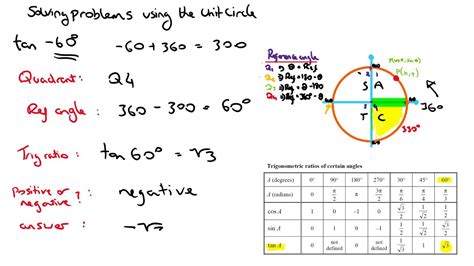 Solving problems using the Unit Circle
tan -60° -60 + 360 = 300
Quadrant: Q4
Ref angle: 360 - 300 = 60°
Trig ratio: tan 60° = √3
Positive or negative?: negative
answer: -√3
Reference angle
Q1 ⇒ θ = Ref
Q2 ⇒ Ref = 180 - θ
Q3 ⇒ Ref = θ - 180
Q4 ⇒ Ref = 360° - θ
P(cos θ, sin θ)
P(x, y)
2 1
S A
T C
360°
330°
Trigonometric ratios of certain angles
A (degrees) 0° 90° 180° 270° 30° 45° 60°
A (radians) 0 π/2 π 3π/2 π/6 π/4 π/3
cos A 1 0 -1 0 √3/2 1/√2 1/2
sin A 0 1 0 -1 1/2 1/√2 √3/2
tan A 0 not defined 0 not defined 1/√3 1 √3